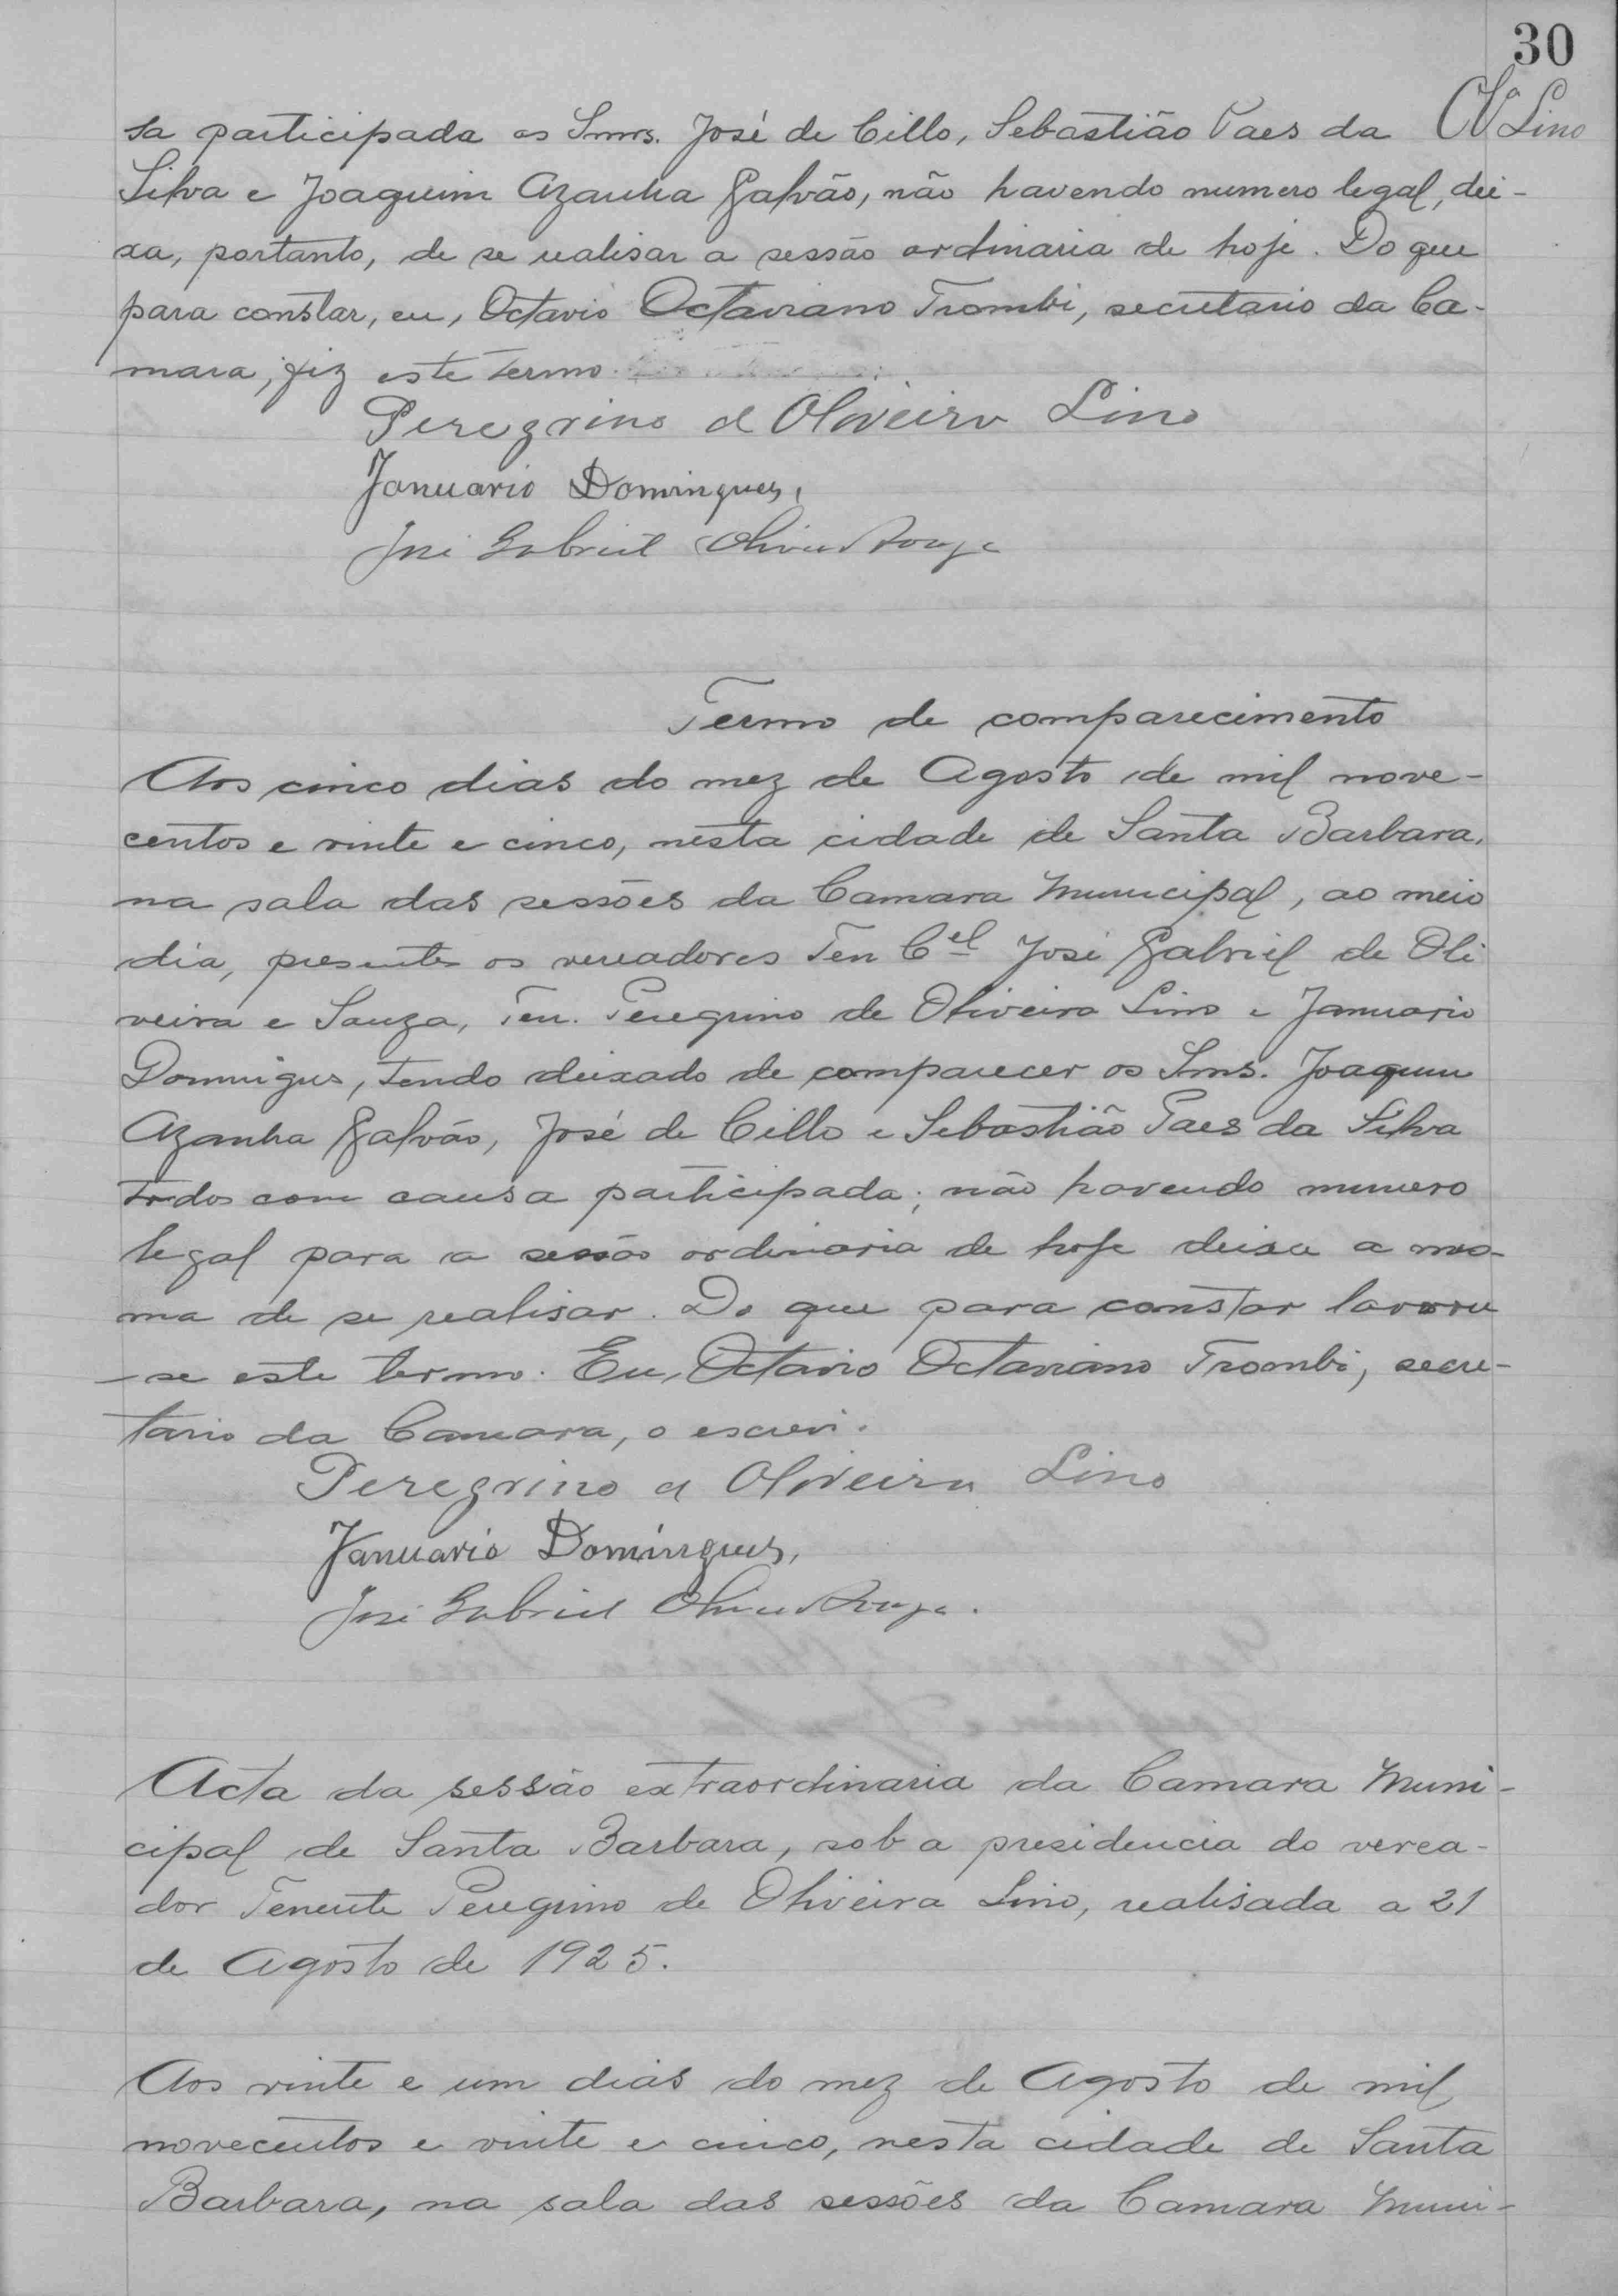 30
sa participada os Snrs. José de Cillo, Sebastião Paes da
Lino
Silva e Joaquim Azanha Galvão, não havendo numero legal, dei-
xa, portanto, de se realisar a sessão ordinaria de hoje. Do que
para constar, eu, Octavio Octaviano Trombi, secretario da Ca-
mara, fiz este termo.
Peregrino d Oliveira Lino
Januario Domingues,
José Gabriel Olivra Souza
Termo de comparecimento
Aos cinco dias do mez de Agosto de mil nove-
centos e vinte e cinco, nesta cidade de Santa Barbara,
na sala das sessões da Camara Municipal, ao meio
dia, presentes os vereadores Ten Cel José Gabriel de Oli
veira e Souza, Ten. Peregrino de Oliveira Lino e Januario
Domingues, tendo deixado de comparecer os Snrs. Joaquim
Azanha Galvão, José de Cillo e Sebastião Paes da Silva
todos com causa participada; não havendo numero
legal para a sessão ordinaria de hoje deixa a mes-
ma de se realisar. Do que para constar lavrou
-se este termo. Eu, Octavio Octaviano Trombi, secre-
tario da Camara, o escrevi.
Peregrino d Oliveira Lino
Januario Domingues,
José Gabriel Olivra Souza.
Acta da sessão extraordinaria da Camara Muni-
cipal de Santa Barbara, sob a presidencia do verea-
dor Tenente Peregrino de Oliveira Lino, realisada a 21
de Agosto de 1925.
Aos vinte e um dias do mez de Agosto de mil
novecentos e vinte e cinco, nesta cidade de Santa
Barbara, na sala das sessões da Camara Muni-